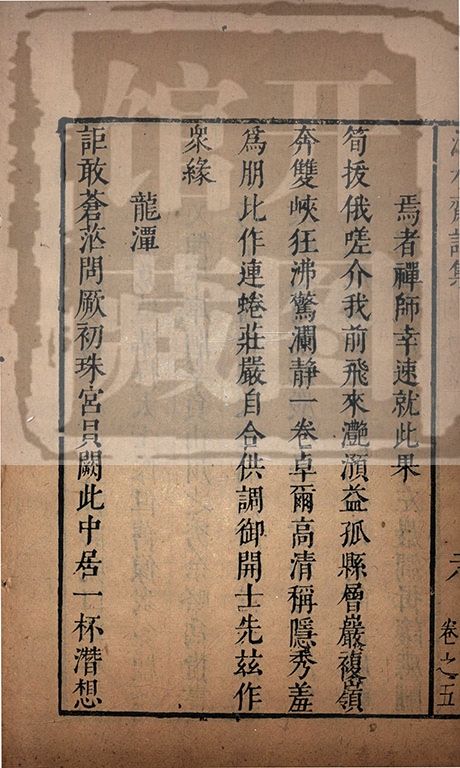 焉者禪師幸速就此果
筍拔俄嗟介我前飛來灔澦益孤縣層巖複嶺
奔雙峽狂沸驚瀾靜一卷卓爾高清稱隱秀羞
爲朋比作連蜷莊嚴自合供調御開士先茲作
衆緣
龍潭
詎敢蒼茫問厥初珠宮貝闕此中居一杯潛想
卷之五